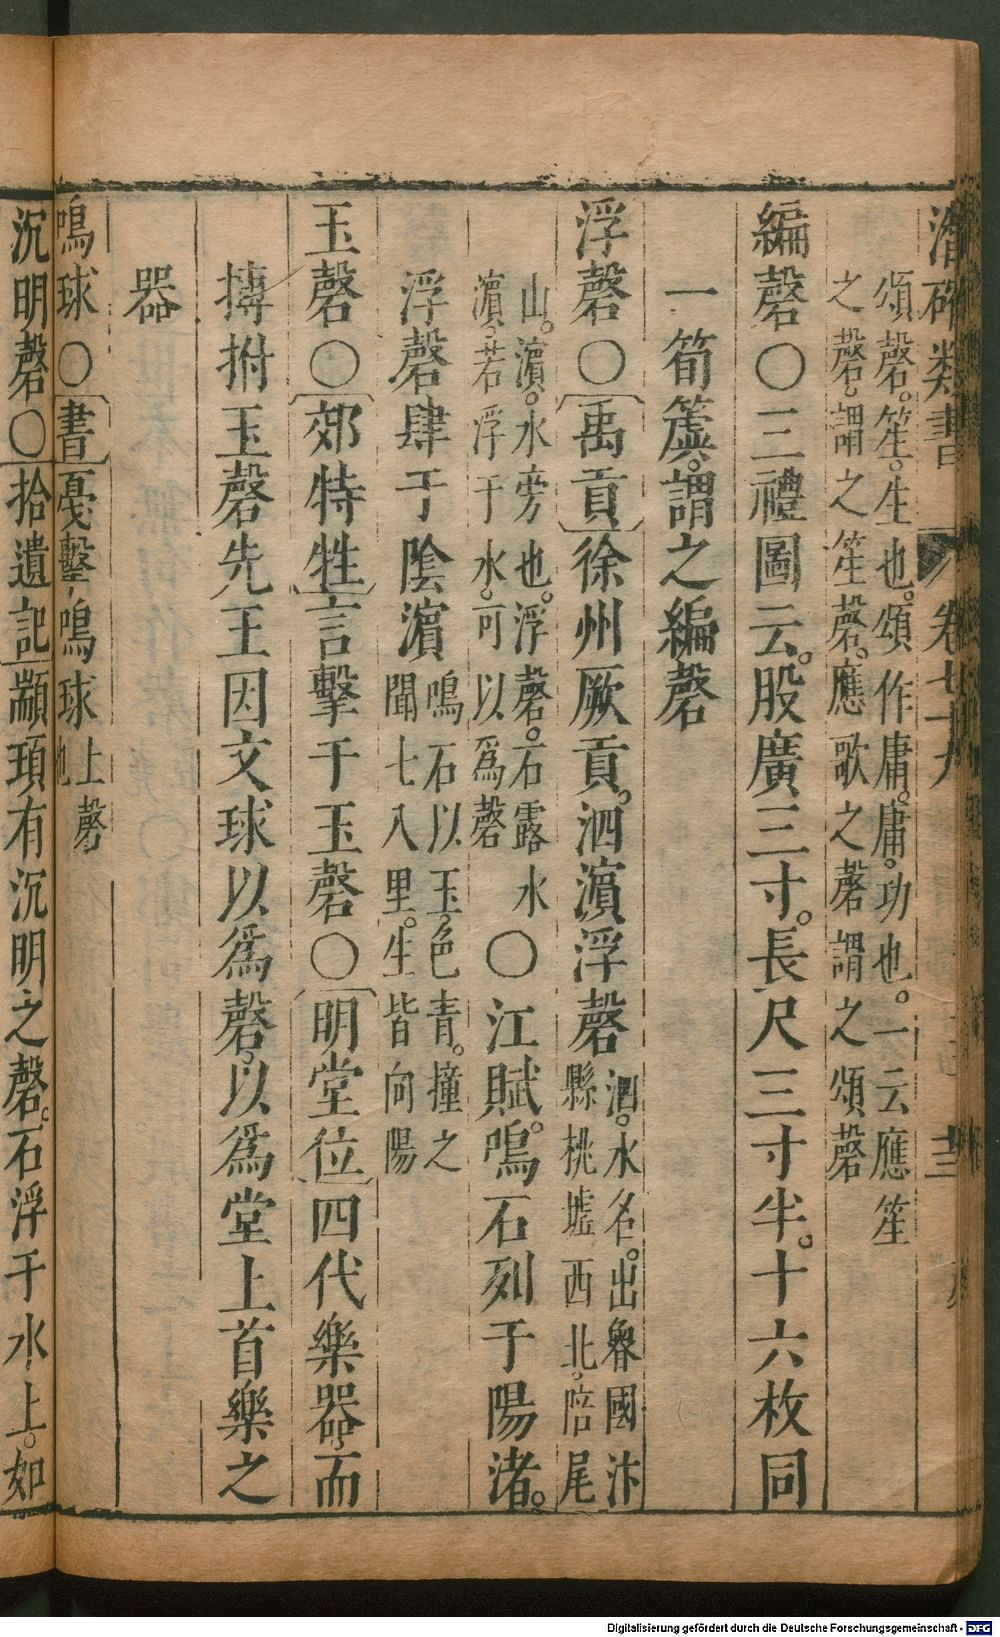 潛確類書 卷七十九 三
頌磬。笙。生也。頌作庸。庸。功也。一云應笙
之磬。謂之笙磬。應歌之磬謂之頌磬
編磬〇三禮圖云。股廣三寸。長尺三寸半。十六枚同
一筍簴。謂之編磬
浮磬〇禹貢徐州厥貢。泗濵浮磬
泗。水名。出魯國汴
縣桃墟西北。陪尾
山。濵。水旁也。浮磬。石露水
濵。若浮于水。可以爲磬
〇江賦。鳴石列于陽渚。
浮磬肆于陰濵
鳴石以玉。色青。撞之
聞七八里。生皆向陽
玉磬〇郊特牲言擊于玉磬〇明堂位四代樂器。而
搏拊玉磬先王因文球以爲磬。以爲堂上首樂之
器
鳴球〇書戛擊。鳴球
上磬
也
沉明磬〇拾遺記顓頊有沉明之磬。石浮于水上。如
Digitalisierung gefördert durch die Deutsche Forschungsgemeinschaft - DFG